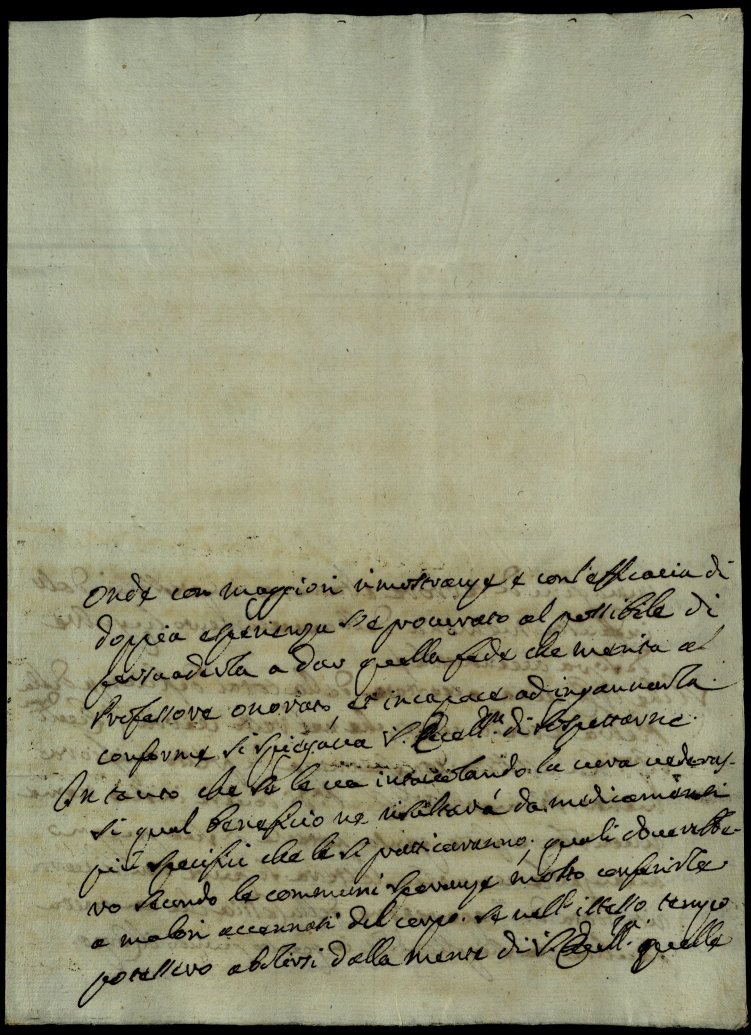 Onde con maggiori rimostranze e con l'efficacia di
doppia esperienza s'e procurato al possibile di
persuaderla a dar quella fede che merita al
Professore onorato, et incapace ad ingannarla
conforme si spiegava V. Eccell.ª di sospettarne.
In tanto che se le va la cura vedras-
si qual beneficio ne risultarà da medicamenti
più specifici che le si pratticaranno, quali doverebbe-
ro secondo le communi speranze molto conferirle
a malori accennati del corpo. se nell'istesso tempo
potessero abolirsi dalla mente di V. Eccell.ª quelle